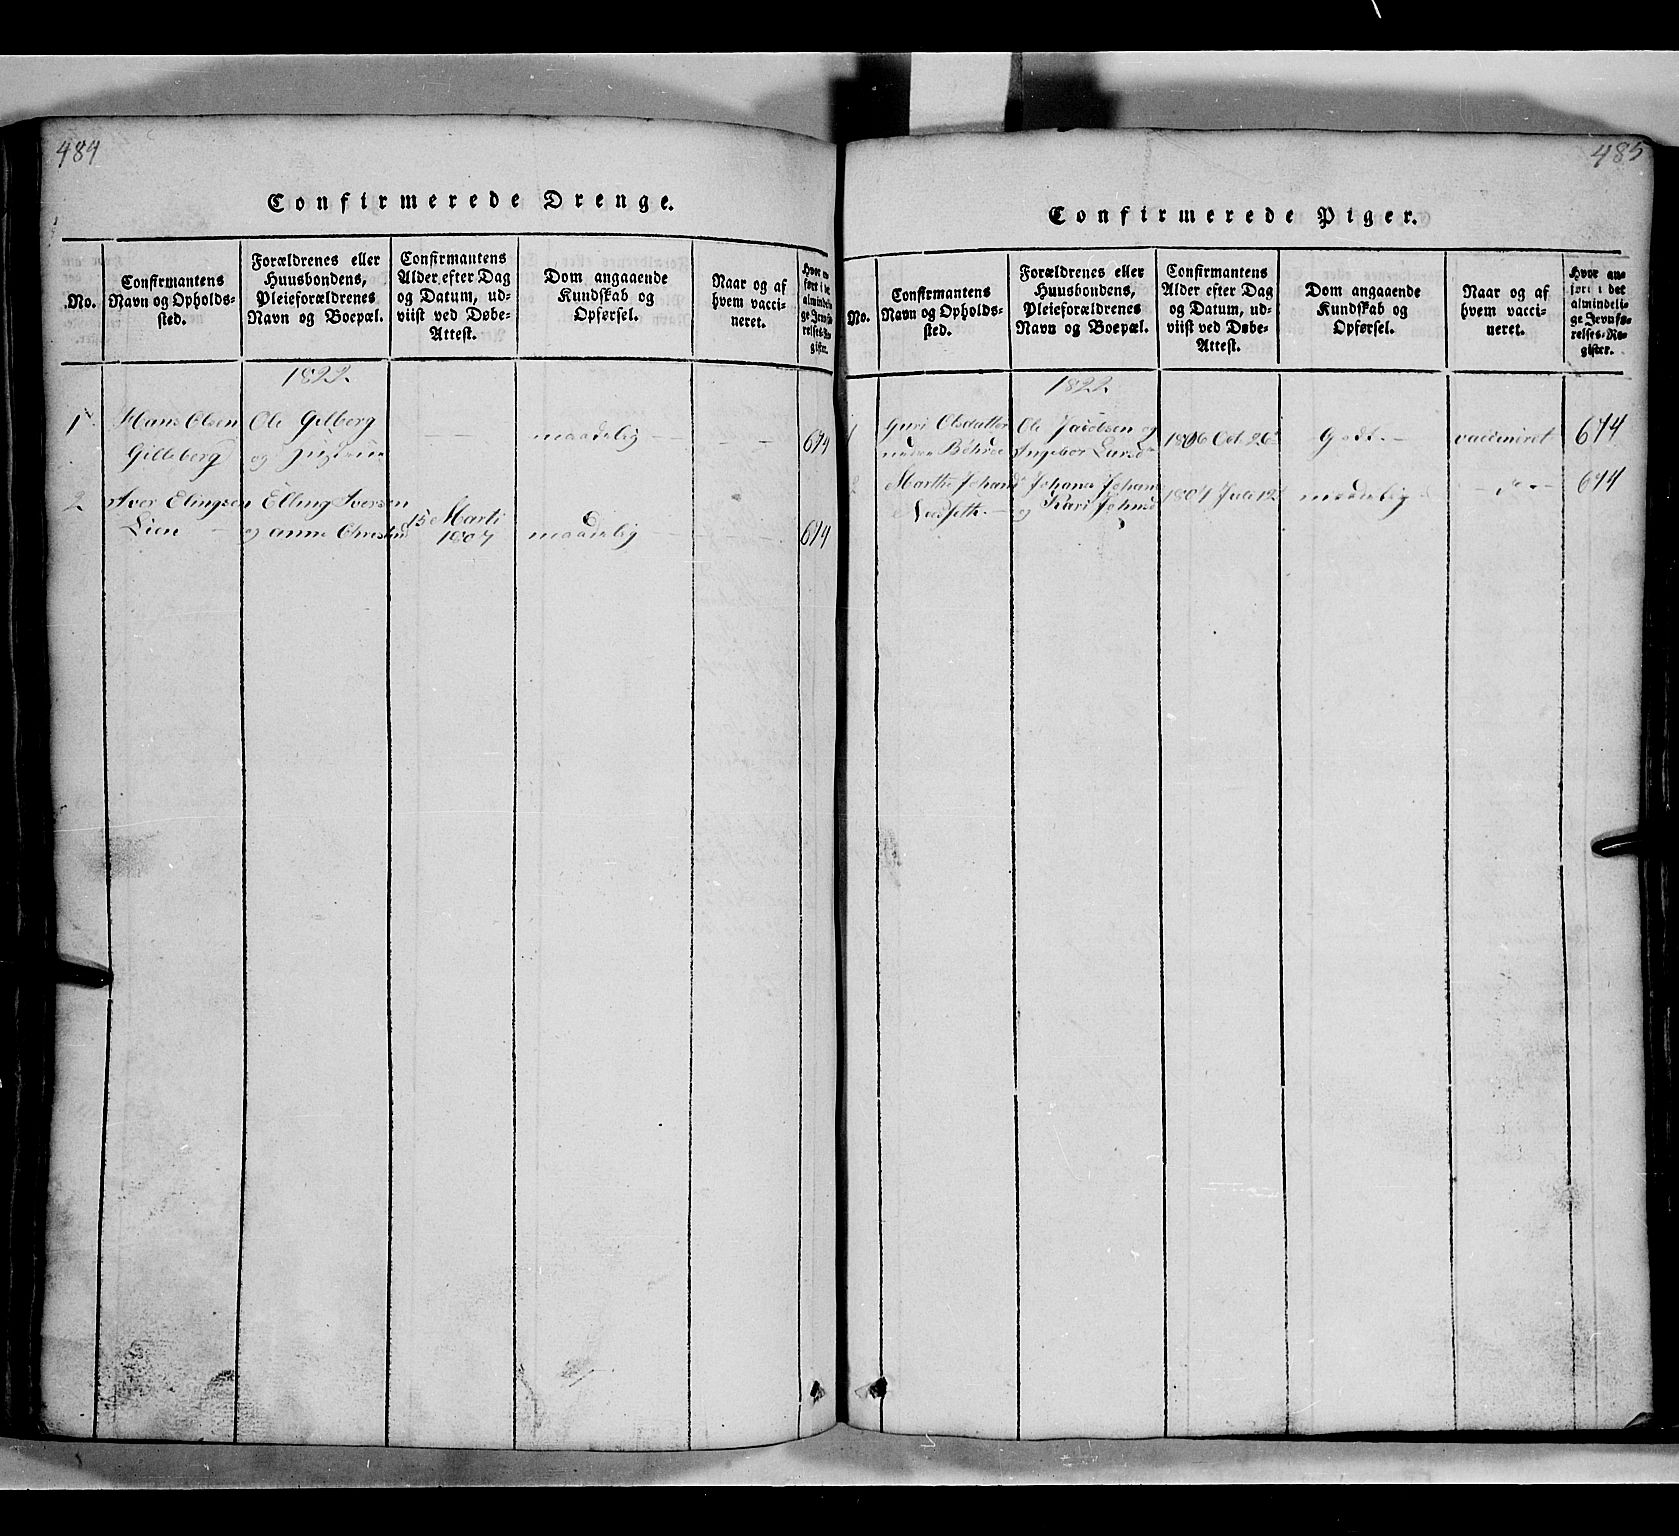 484
Confirmerede Drenge.
No.
Confirmantens
Navn og Opholds-
sted.
Forældrenes eller
Huusbondens,
Pleieforældrenes
Navn og Boepæl.
Confirmantens
Alder efter Dag
og Datum, ud-
viist ved Døbe-
Attest.
Dom angaaende
Kundskab og
Opførsel.
Naar og af
hvem vacci-
neret.
Hvor an-
ført i det
almindeli-
ge Jevnfø-
relses-Re-
gister.
1822
1
Hans Olsen
Gilleberg
Ole Gilberg
og
maadelig
674
2
Iver Elingsen
Lien
Elling Iversen
og Anne Christensd
15 Marti
1807
maadelig
674
485
Confirmerede Piger.
No.
Confirmantens
Navn og Opholds-
sted.
Forældrenes eller
Huusbondens,
Pleieforældrenes
Navn og Boepæl.
Confirmantens
Alder efter Dag
og Datum, ud-
viist ved Døbe-
Attest.
Dom angaaende
Kundskab og
Opførsel.
Naar og af
hvem vacci-
neret.
Hvor an-
ført i det
almindeli-
ge Jevnfø-
relses-Re-
gister.
1822
1
Guri Olsdatter
Ole Jacobsen og
Ingebor Larsd
1806 Oct. 26
Godt
vaccineret
674
2
Marthe Johansd
Johans Johans
og Kari Johnsd
1807 Juli 12
maadelig
674